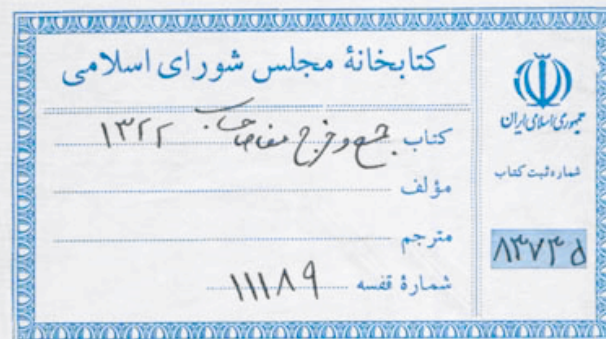 کتابخانهٔ مجلس شورای اسلامی
کتاب جمع و خرج مفاصاحساب ۱۳۲۲
مؤلف
مترجم
شمارهٔ قفسه ۱۱۱۸۹
جمهوری اسلامی ایران
شماره ثبت کتاب
۸۳۷۳۵